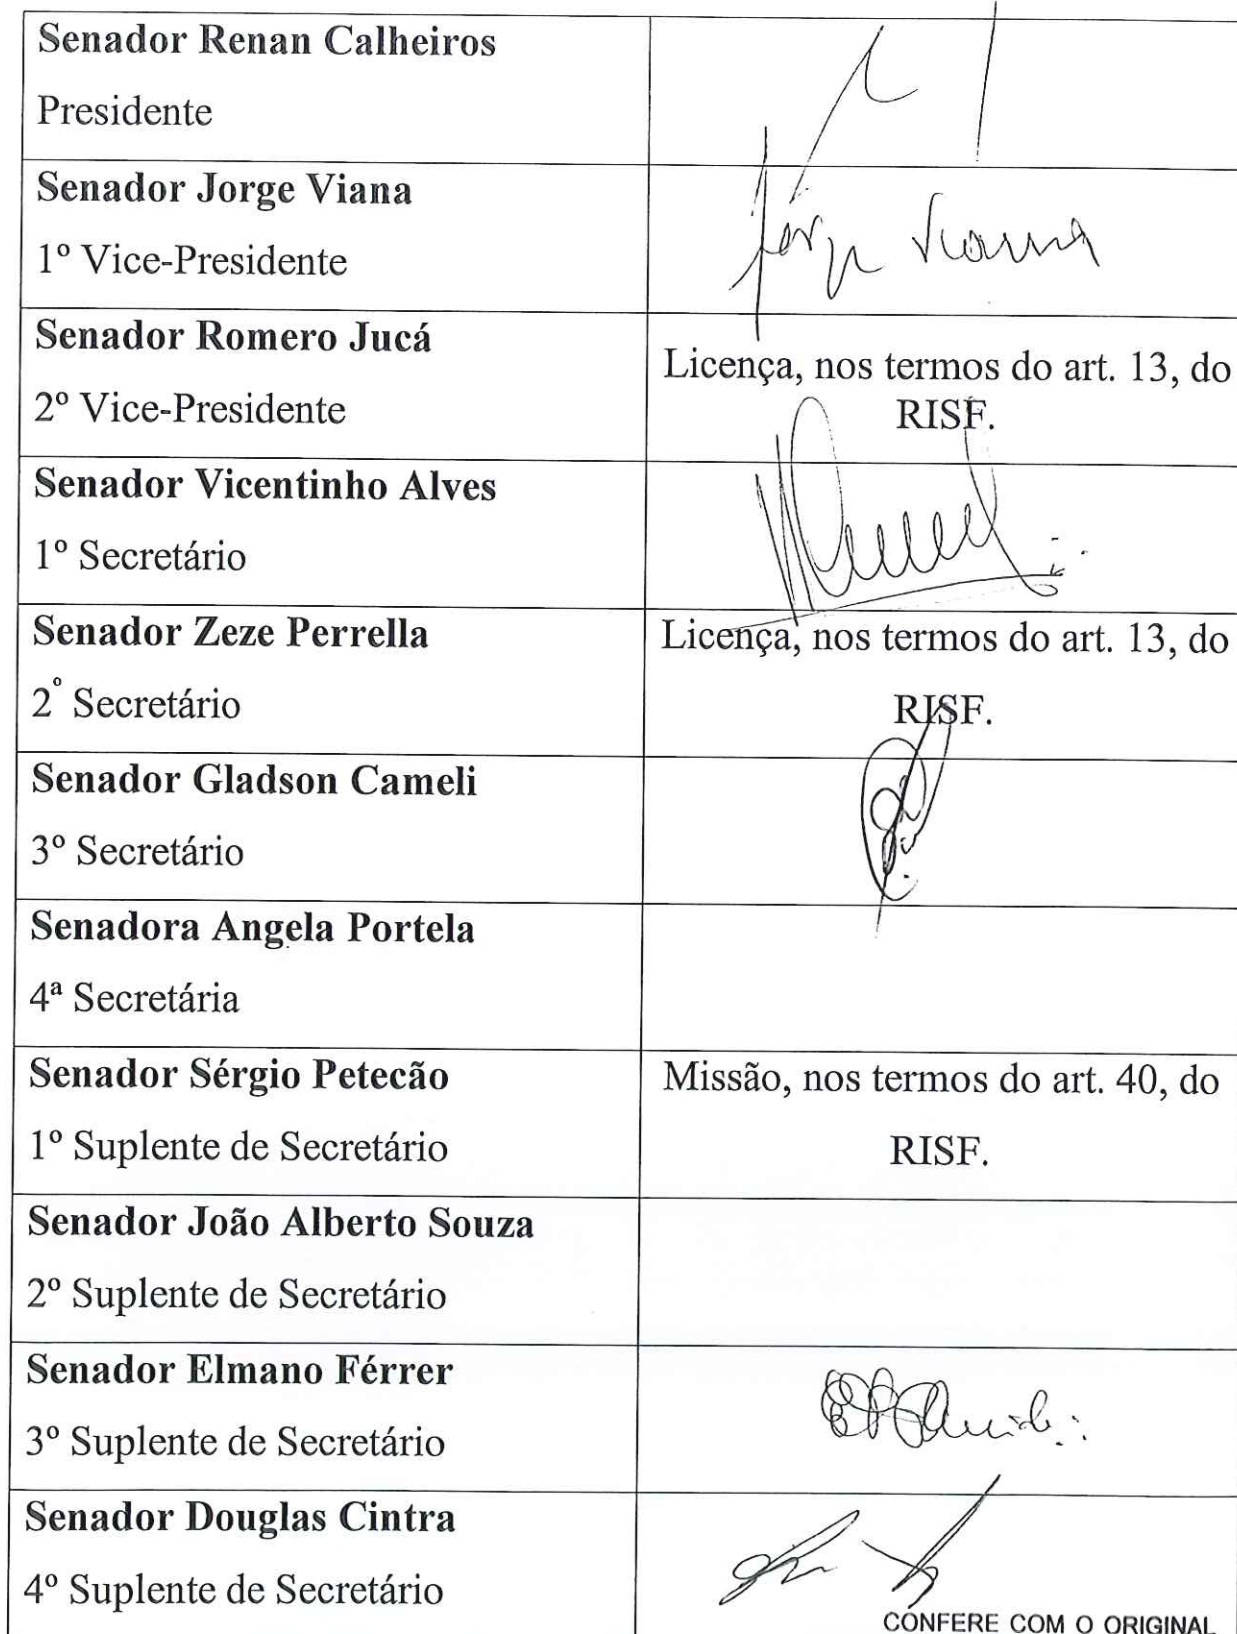 Senador Renan Calheiros
Presidente
Senador Jorge Viana
1º Vice-Presidente
Jorge Viana
Senador Romero Jucá
2º Vice-Presidente
Licença, nos termos do art. 13, do
RISF.
Senador Vicentinho Alves
1º Secretário
Senador Zeze Perrella
2º Secretário
Licença, nos termos do art. 13, do
RISF.
Senador Gladson Cameli
3º Secretário
Senadora Angela Portela
4ª Secretária
Senador Sérgio Petecão
1º Suplente de Secretário
Missão, nos termos do art. 40, do
RISF.
Senador João Alberto Souza
2º Suplente de Secretário
Senador Elmano Férrer
3º Suplente de Secretário
Senador Douglas Cintra
4º Suplente de Secretário
CONFERE COM O ORIGINAL